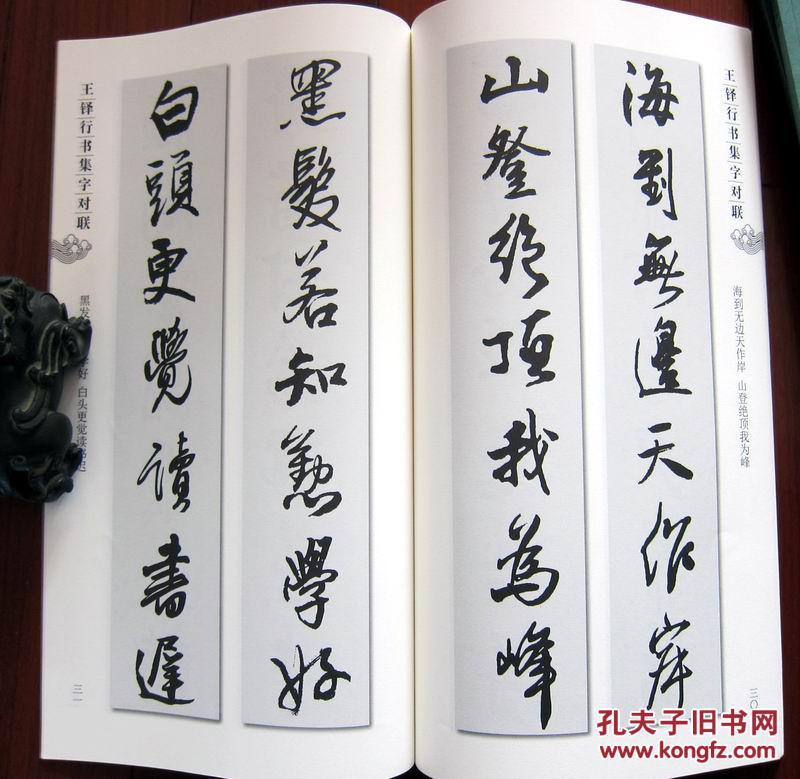 王铎行书集字对联
海到无边天作岸 山登绝顶我为峰
三〇
海到無邊天作岸
山登絶頂我為峰
黑髮若知懃學好
白頭更覺讀書遲
王铎行书集字对联
黑发 好 白头更觉读书迟
三一
孔夫子旧书网
www.kongfz.com